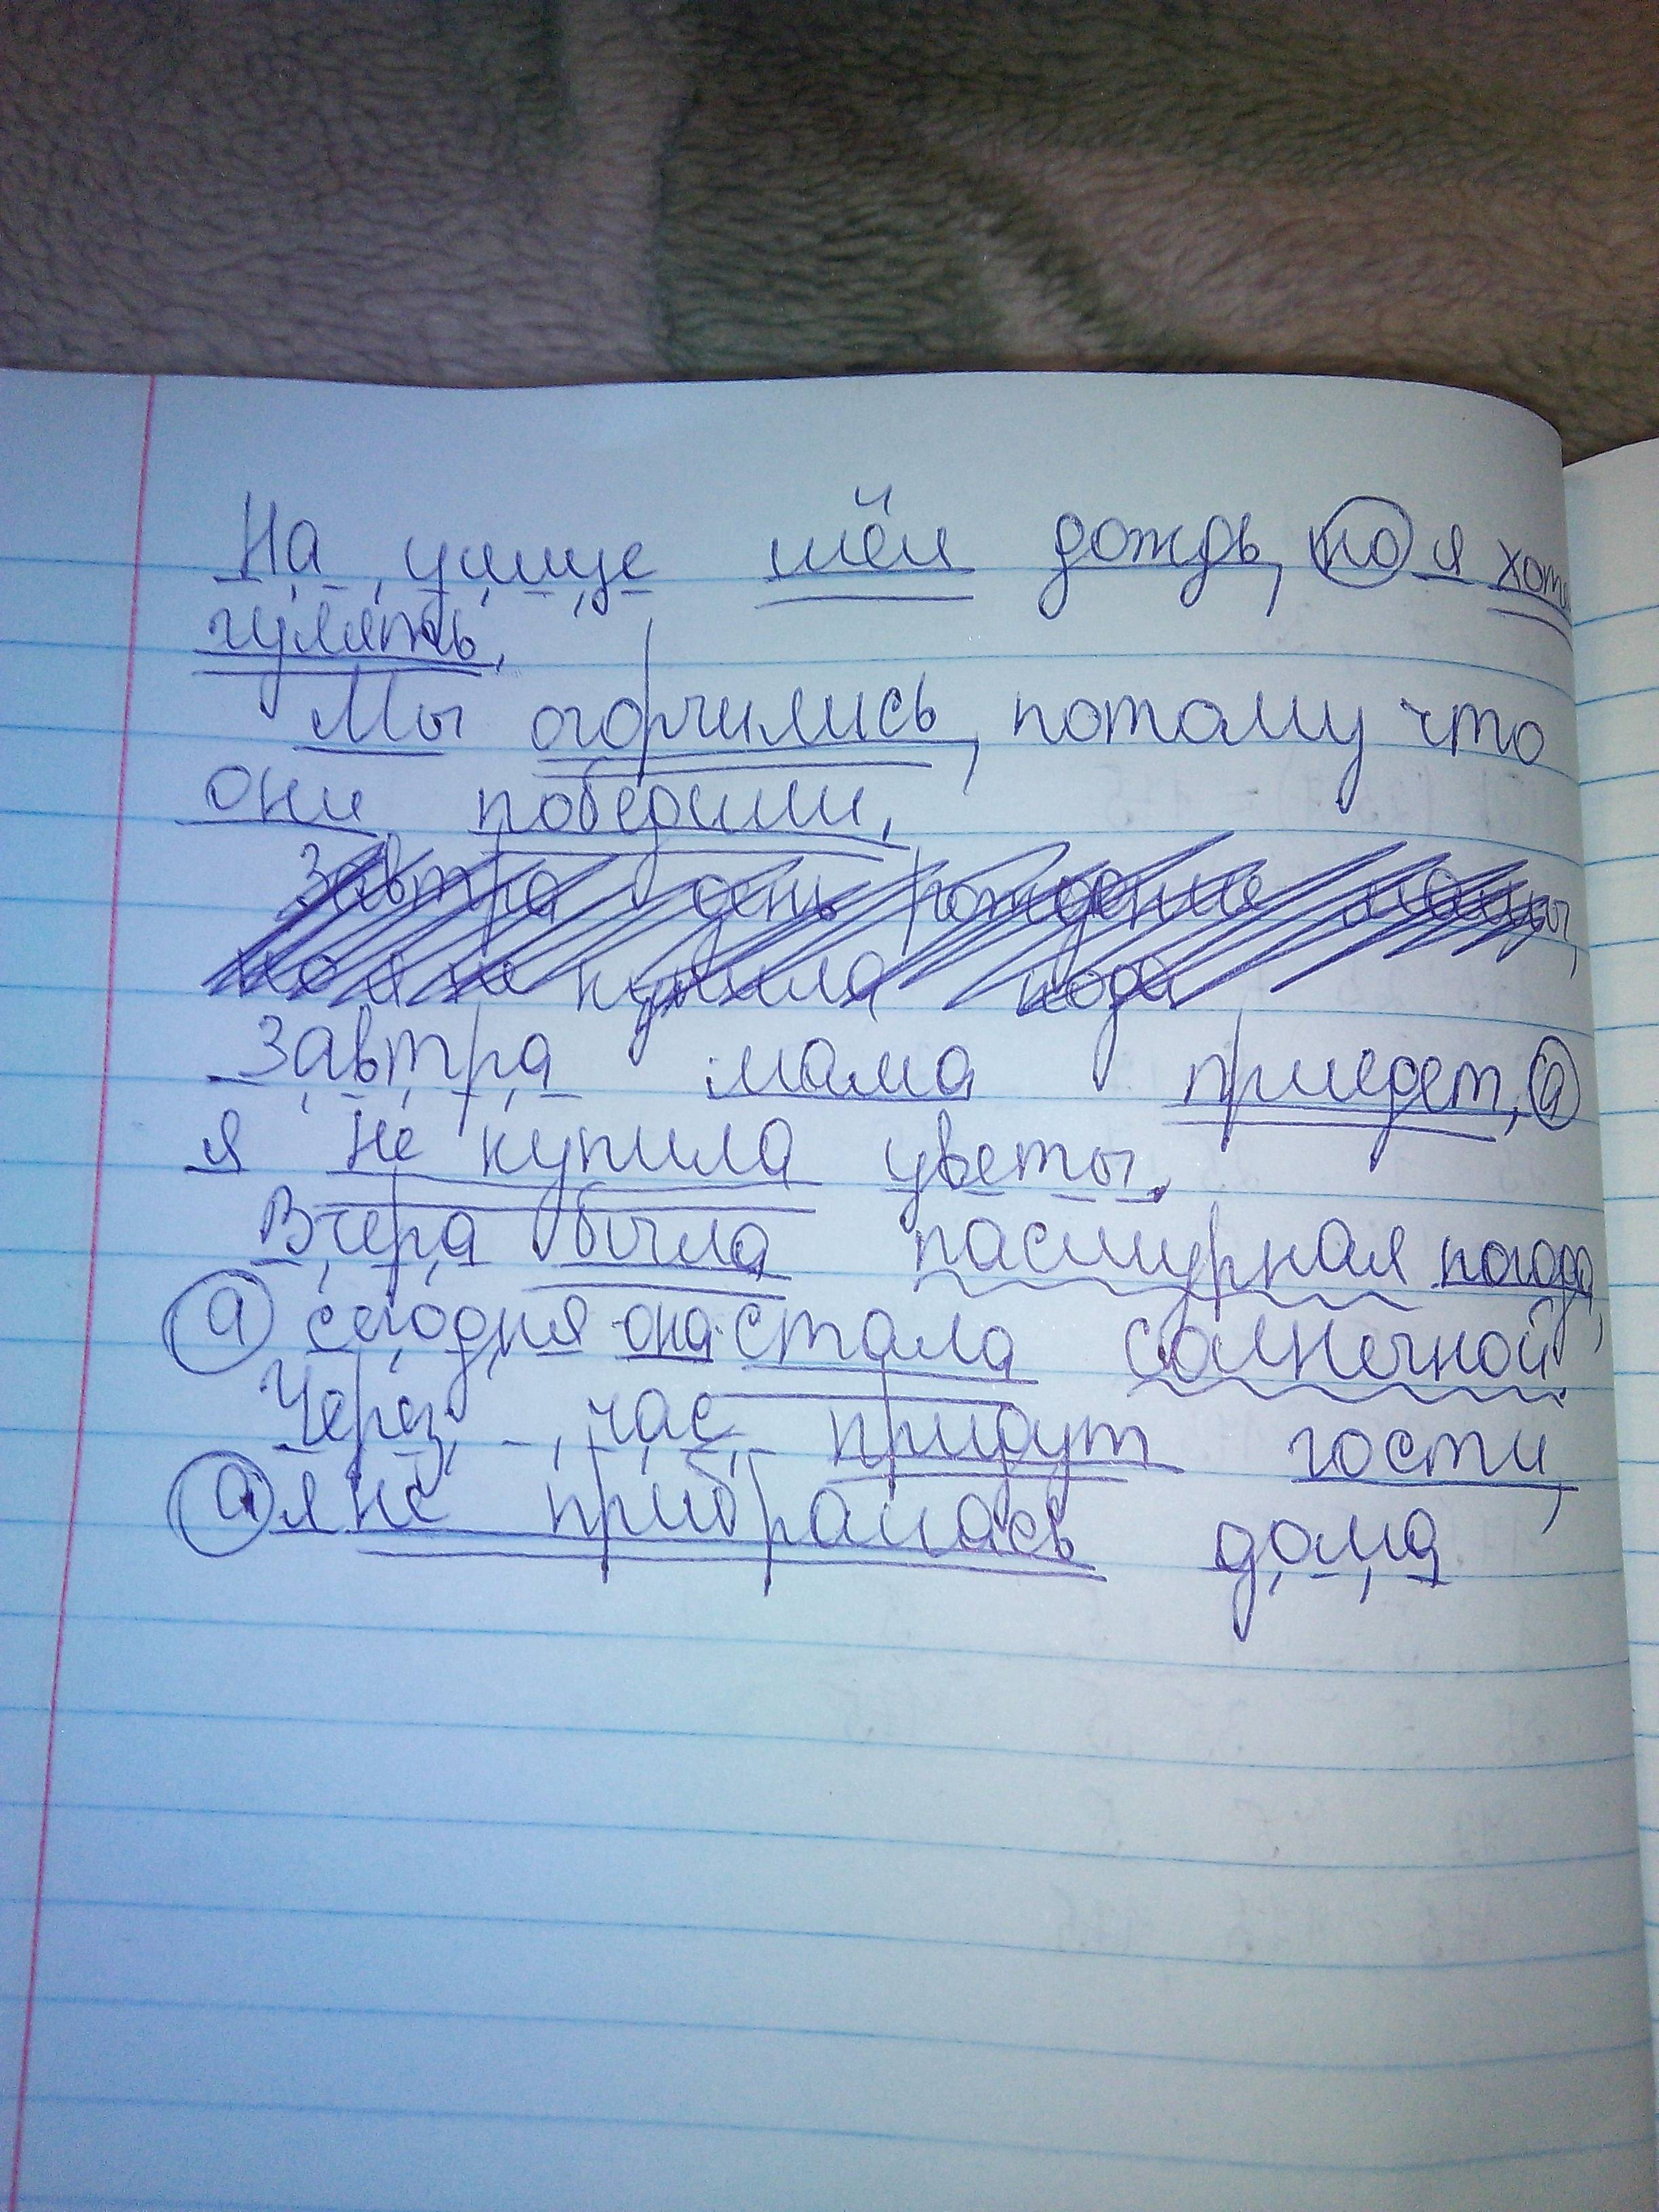 На улице шёл дождь, но я
гулять.
Мы огорчились, потому что
они победили.
Завтра день рождение мамы,
но я не купила пода
Завтра мама приедет, а
я не купила цветы.
Вчера была пасмурная погода,
а сегодня она стала солнечной.
Через час придут гости,
а я не прибралась дома